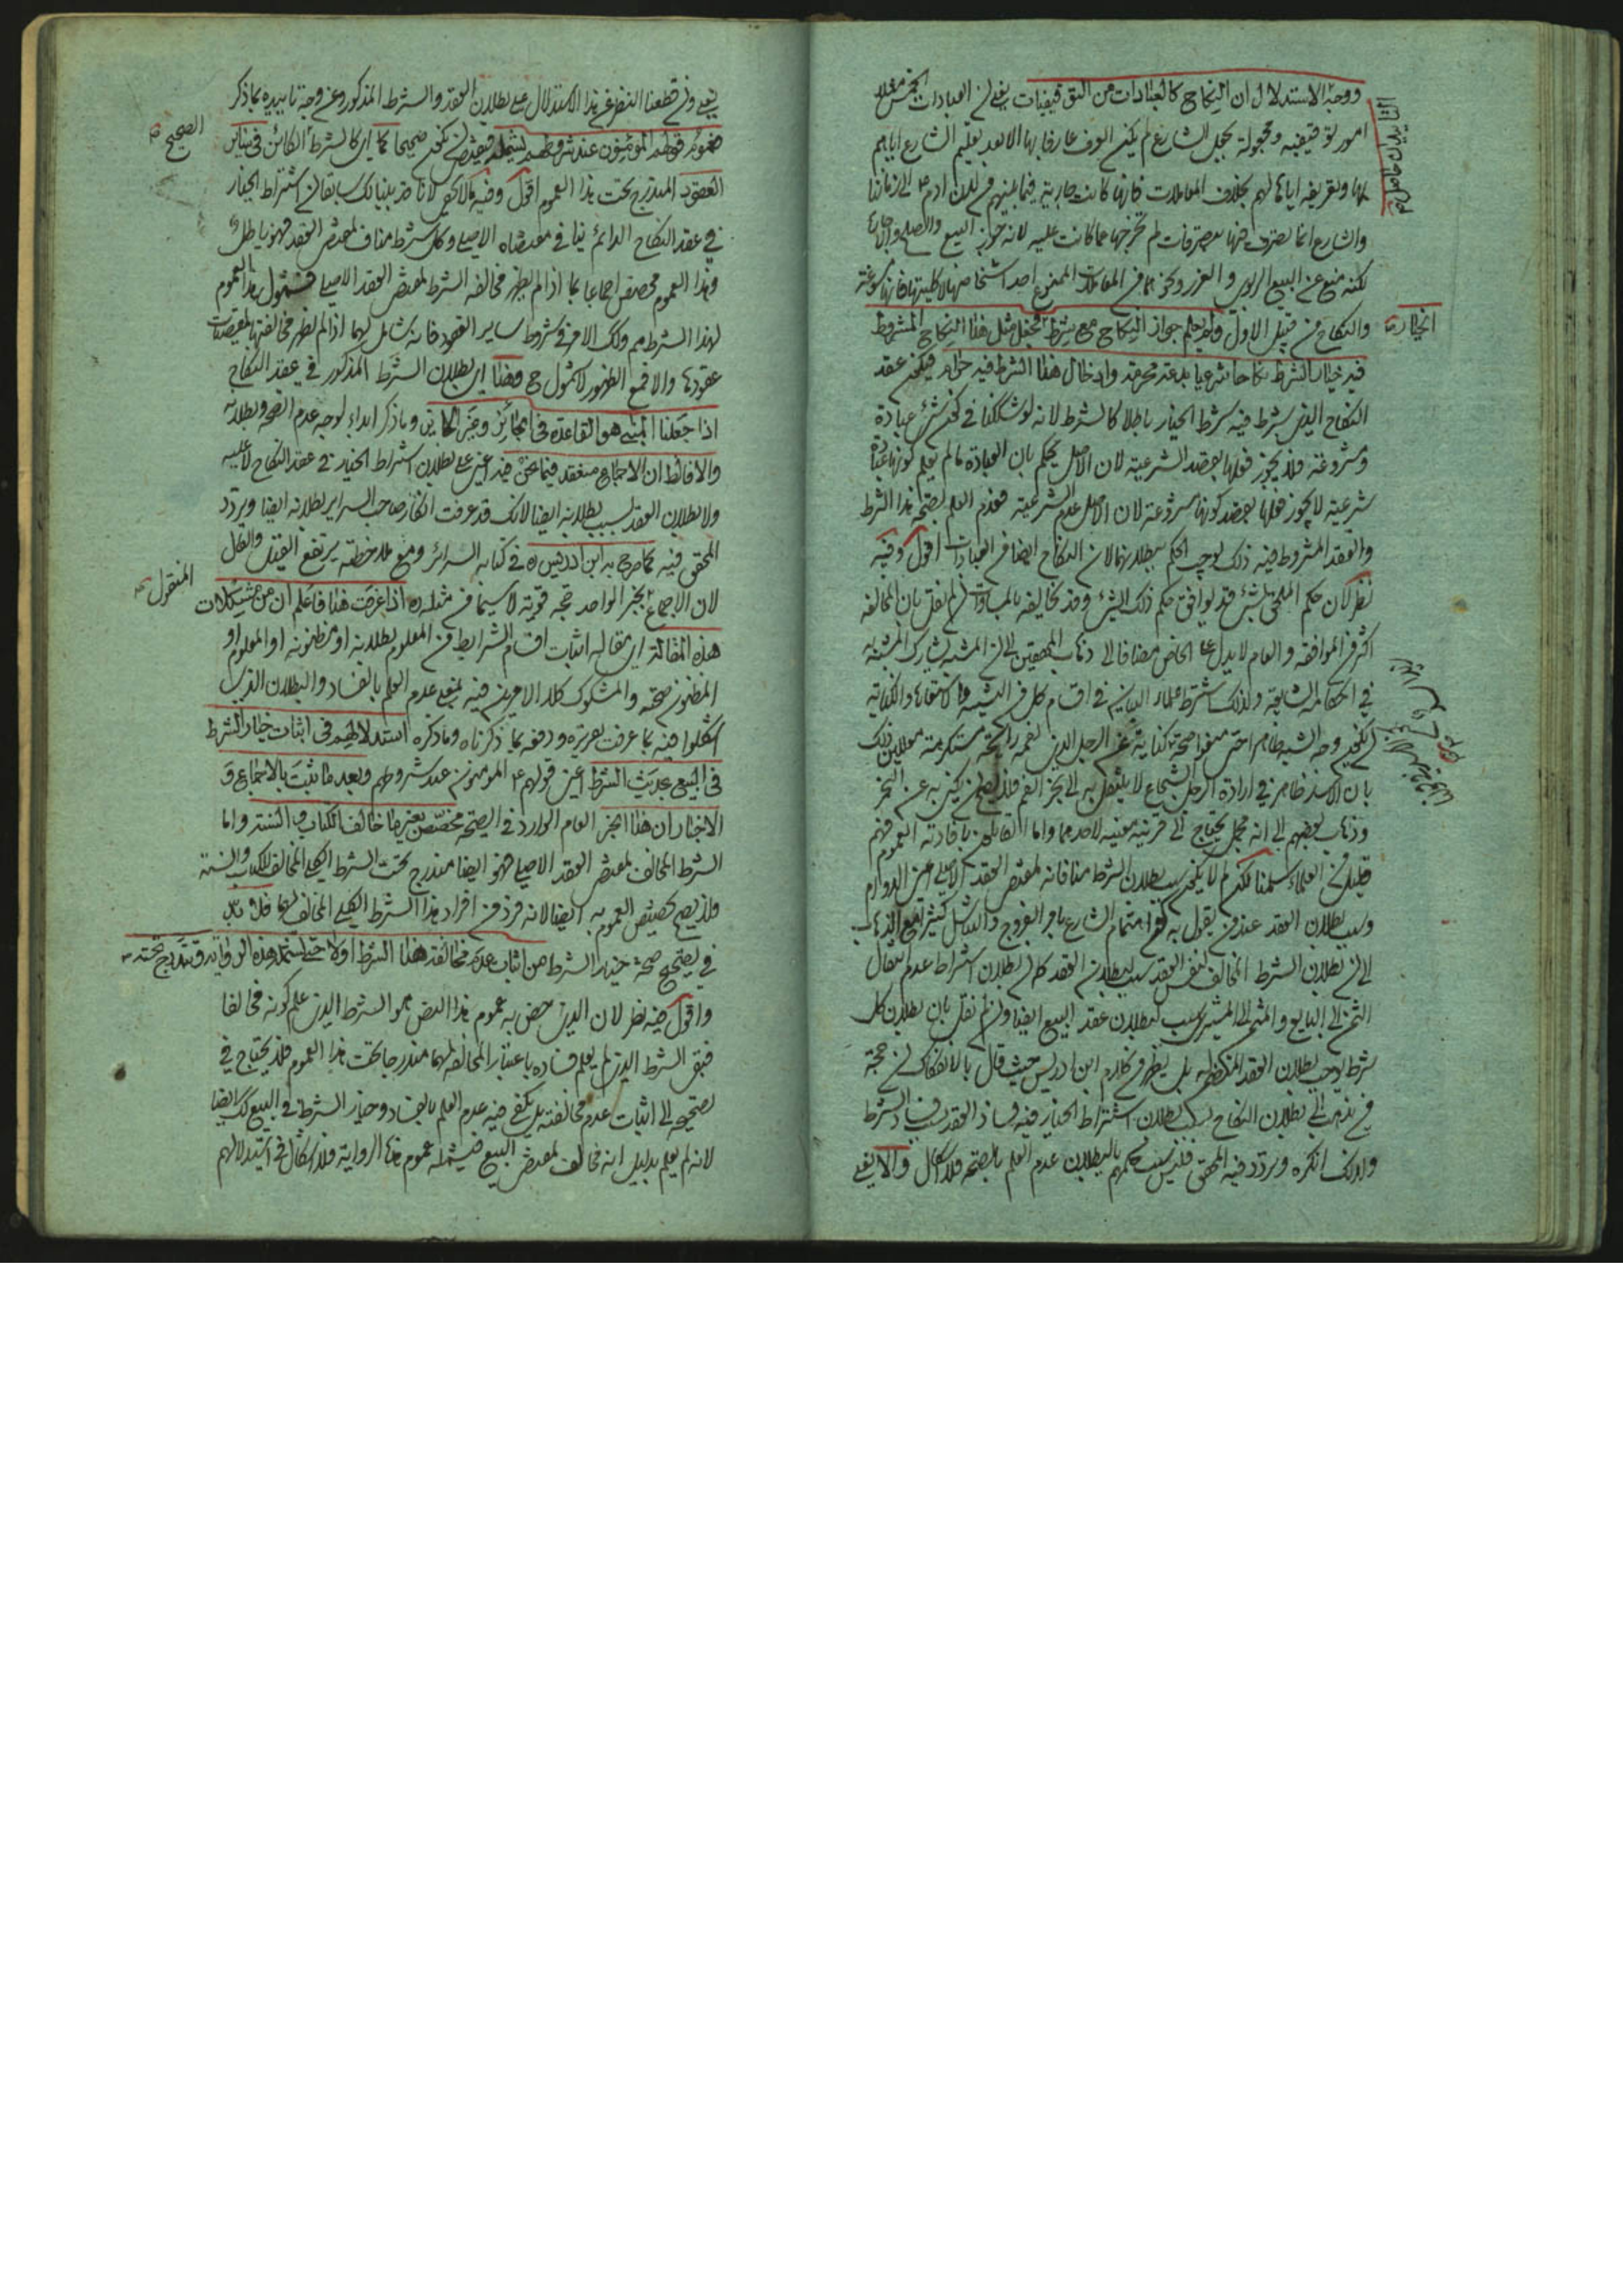 ووجه الاستدلال ان النكاح كالعبادات من التوقيفيات يعني ان العبادات الخمس مثلا
امور توقيفية ومجعولة بجعل الشارع لم يكن العرف عارفا بها الا بعد تعليم الشارع اياهم
بها وتعريفه اياها لهم بخلاف المعاملات فانها كانت جارية فيما بينهم من لدن ادم الى زماننا
والشارع انما تصرف فيها تصرفات لم تخرجها عما كانت عليه لانه جوز البيع والصلح والاجارة
لكنه منع عن البيع الربوي و الغرر ونحوهما من المعاملات الممنوع احد اشخاصها لا كليتها فانها
والنكاح من قبيل الاول ولم يعلم جواز النكاح مع شرط الخيار مثل هذا النكاح المشروط
فيه خيار الشرط نكاحا شرعيا بدعة محرمة وادخال هذا الشرط فيه حرام فيكون عقد
النكاح الذي شرط فيه شرط الخيار باطلا كالشرط لانه لو شككنا في كون شيء عبادة
ومشروعة فلا يجوز فعلها بقصد الشرعية لان الاصل يحكم بان العبادة ما لم يعلم كونها عبادة
شرعية لا يجوز فعلها بقصد كونها مشروعة لان الاصل عدم الشرعية فعدم العلم بصحة هذا الشرط
والعقد المشروط فيه ذلك يوجب الحكم ببطلانهما لان النكاح ايضا من العبادات اقول وفيه
نظر لان حكم الملحق بشيء قد يوافق حكم ذلك الشيء وقد يخالفه بالمساوات ان لم نقل بان المخالفة
اكثر من الموافقة والعام لا يدل على الخاص مضافا الى ذهاب المحققين الى ان المشبه يشارك المشبه به
في احكامه الشايعة ولذلك اشترط علماء البيان في اقسام كل من التشبيه والاستعارة والكناية
ان يكون وجه الشبه ظاهرا
بان الاسد ظاهر في ارادة الرجل الشجاع لا ينتقل به الى بخر الفم فلا يصلح ان يكنى به عن البخر
وذهاب بعضهم الى انه مجمل يحتاج الى قرينة معينة لاحدهما واما القائلون بافادته العموم فهم
قليل من العلماء سلمنا لكن لم لا يكون سبب بطلان الشرط منافاته لمقتضى العقد الاصلي اعني الدوام
وسبب بطلان العقد عند من يقول به هو اهتمام الشارع بامر الفروج والتناسل كثيرا مع الذهاب
الى ان بطلان الشرط المخالف لنفس العقد سبب لبطلان العقد كما ان بطلان اشتراط عدم انتقال
الثمن الى البايع والمثمن الى المشتري سبب لبطلان عقد البيع ايضا وان لم نقل بان بطلان كل
شرط يوجب بطلان العقد بل يظهر من كلام ابن ادريس حيث قال بالانفكاك ان حجة
من ذهب الى بطلان النكاح بسبب بطلان اشتراط الخيار فيه فساد العقد بسبب فساد الشرط
ولذلك انكره وتردد فيه المحقق فليس سبب حكمهم بالبطلان عدم العلم بالصحة فلا اشكال والا يعني
الخيار
يعني وان قطعنا النظر عن هذا الاستدلال على بطلان العقد والشرط المذكور وعن وجه تاييده بما ذكر
فعموم قولهم المؤمنون عند شروطهم يشمله فيقتضي ان يكون صحيحا كما اي كالشرط الكائن في سائر
الصحيح
العقود المندرج تحت هذا العموم اقول وفيه ما لا يخفى لانا قد بينا لك سابقا ان اشتراط الخيار
في عقد النكاح الدائم ينافي مقتضاه الاصلي وكل شرط مناف لمقتضى العقد فهو باطل
وهذا العموم مخصص اجماعا بما اذا لم يظهر مخالفة الشرط لمقتضى العقد الاصلي فشمول هذا العموم
لهذا الشرط مم وكك الامر في شروط ساير العقود فانه شامل لها اذا لم تظهر مخالفتها لمقتضيات
عقودها والا فمع الظهور لا شمول ح وهذا اي بطلان الشرط المذكور في عقد النكاح
اذا جعلنا المبنى هو القاعدة في الجائزين وغير الجائزين وما ذكر ابداء لوجه عدم الصحة وبطلانه
والا فالظ ان الاجماع منعقد فيما نحن فيه اعني على بطلان اشتراط الخيار في عقد النكاح لا عليه
ولا بطلان العقد بسبب بطلانه ايضا لانك قد عرفت انكار صاحب السرائر بطلانه ايضا وتردد
المحقق فيه كما صرح به ابن ادريس ره في كتابه السرائر ومع ملاحظته يرتفع القيل والقال
لان الاجماع كخبر الواحد حجة قوية لا سيما في مثله اذا عرفت هذا فاعلم ان من مشكلات
المنقول
هذه المقالة اي مقالة اثبات اقسام الشرايط من المعلوم بطلانه او مظنونه او المعلوم او
المظنون صحته والمشكوك كلا الامرين فيه بمعنى عدم العلم بالفساد والبطلان الذي
اشكلوا فيه بما عرفت تحريره ودفعه بما ذكرناه وما ذكره استدلالهم في اثبات خيار الشرط
في البيع بحديث الشرط اعني قولهم المومنون عند شروطهم وبعد ما ثبت بالاجماع و
الاخبار ان هذا الخبر العام الوارد في الصحة مخصص بغير ما خالف الكتاب والسنة واما
الشرط المخالف لمقتضى العقد الاصلي فهو ايضا مندرج تحت الشرط الكلي المخالف للكتاب والسنة
فلا يصح تخصيص العموم به ايضا لانه فرد من افراد هذا الشرط الكلي المخالف لهما فلا بد
في تصحيح صحة خيار الشرط من اثبات عدم مخالفة هذا الشرط اولا حتى تشمله هذه الرواية ويندرج تحته
واقول فيه نظر لان الذي خص به عموم هذا النص هو الشرط الذي علم كونه مخالفا
فبقى الشرط الذي لم يعلم فساده باعتبار المخالفة لهما مندرجا تحت هذا العموم فلا يحتاج في
تصحيحه الى اثبات عدم مخالفته بل يكفي فيه عدم العلم بالفساد وخيار الشرط في البيع كك ايضا
لانه لم يعلم بدليل انه مخالف لمقتضى البيع فيشمله عموم هذه الرواية فلا اشكال في استدلالهم